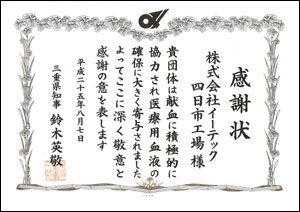 感謝状
株式会社イーテック
四日市工場 様
貴団体は献血に積極的に
協力され医療用血液の
確保に大きく寄与されました
よってここに深く敬意と
感謝の意を表します
平成二十五年八月七日
三重県知事 鈴木英敬